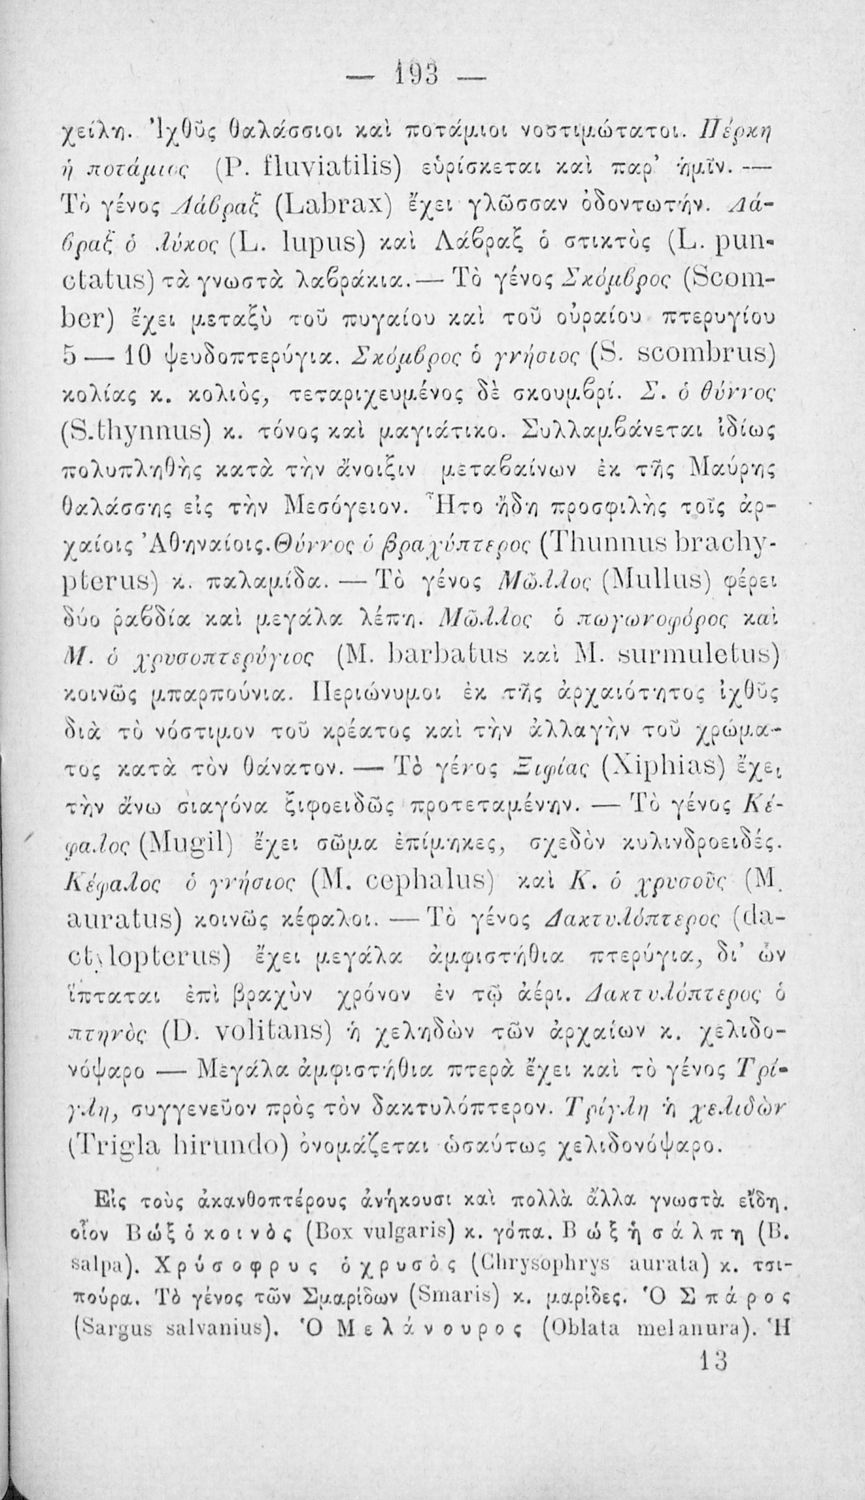 — 193 —
χείλη. Ἰχθῦς θαλάσσιοι καὶ ποτάμιοι νοστιμώτατοι. Πέρκη
ἡ ποτάμιος (P. fluviatilis) εὑρίσκεται καὶ παρ' ἡμῖν. —
Τὸ γένος Λάβραξ (Labrax) ἔχει γλῶσσαν ὀδοντωτήν. Λά-
βραξ ὁ λύκος (L. lupus) καὶ Λάβραξ ὁ στικτὸς (L. pun-
ctatus) τὰ γνωστὰ λαβράκια. — Τὸ γένος Σκόμβρος (Scom-
ber) ἔχει μεταξὺ τοῦ πυγαίου καὶ τοῦ οὐραίου πτερυγίου
5 — 10 ψευδοπτερύγια. Σκόμβρος ὁ γνήσιος (S. scombrus)
κολίας κ. κολιὸς, τεταριχευμένος δὲ σκουμβρί. Σ. ὁ θύννος
(S. thynnus) κ. τόνος καὶ μαγιάτικο. Συλλαμβάνεται ἰδίως
πολυπληθὴς κατὰ τὴν ἄνοιξιν μεταβαίνων ἐκ τῆς Μαύρης
θαλάσσης εἰς τὴν Μεσόγειον. Ἦτο ἤδη προσφιλὴς τοῖς ἀρ-
χαίοις Ἀθηναίοις. Θύννος ὁ βραχύπτερος (Thunnus brachy-
pterus) κ. παλαμίδα. — Τὸ γένος Μῶλλος (Mullus) φέρει
δύο ῥαβδία καὶ μεγάλα λέπη. Μῶλλος ὁ πωγωνοφόρος καὶ
Μ. ὁ χρυσοπτερύγιος (M. barbatus καὶ M. surmuletus)
κοινῶς μπαρπούνια. Περιώνυμοι ἐκ τῆς ἀρχαιότητος ἰχθῦς
διὰ τὸ νόστιμον τοῦ κρέατος καὶ τὴν ἀλλαγὴν τοῦ χρώμα-
τος κατὰ τὸν θάνατον. — Τὸ γένος Ξιφίας (Xiphias) ἔχει
τὴν ἄνω σιαγόνα ξιφοειδῶς προτεταμένην. — Τὸ γένος Κέ-
φαλος (Mugil) ἔχει σῶμα ἐπίμηκες, σχεδὸν κυλινδροειδές.
Κέφαλος ὁ γνήσιος (M. cephalus) καὶ Κ. ὁ χρυσοῦς (M.
auratus) κοινῶς κέφαλοι. — Τὸ γένος Δακτυλόπτερος (da-
ctylopterus) ἔχει μεγάλα ἀμφιστήθια πτερύγια, δι' ὧν
ἵπταται ἐπὶ βραχὺν χρόνον ἐν τῷ ἀέρι. Δακτυλόπτερος ὁ
πτηνὸς (D. volitans) ἡ χεληδὼν τῶν ἀρχαίων κ. χελιδο-
νόψαρο — Μεγάλα ἀμφιστήθια πτερὰ ἔχει καὶ τὸ γένος Τρί-
γλη, συγγενεῦον πρὸς τὸν δακτυλόπτερον. Τρίγλη ἡ χελιδὼν
(Trigla hirundo) ὀνομάζεται ὡσαύτως χελιδονόψαρο.
Εἰς τοὺς ἀκανθοπτέρους ἀνήκουσι καὶ πολλὰ ἄλλα γνωστὰ εἴδη,
οἷον Βώξ ὁ κοινὸς (Box vulgaris) κ. γόπα. Βώξ ἡ σάλπη (B.
salpa). Χρύσοφρυς ὁ χρυσὸς (Chrysophrys aurata) κ. τσι-
πούρα. Τὸ γένος τῶν Σμαρίδων (Smaris) κ. μαρίδες. Ὁ Σπάρος
(Sargus salvanius). Ὁ Μελάνουρος (Oblata melanura). Ἡ
13